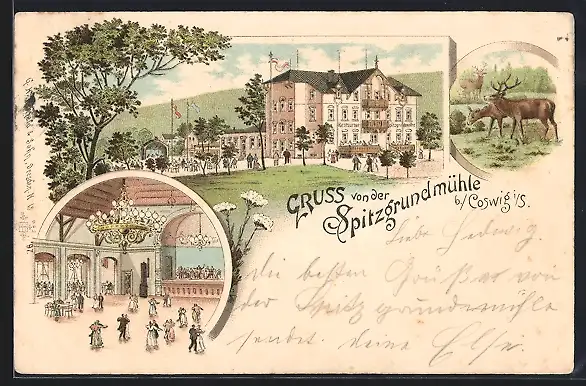 GRUSS von der
Spitzgrundmühle
b/ Coswig i/S.
Liebe Hedwig.
die besten Grüße von
der Spitz grundmühle
sendet. deine Else.